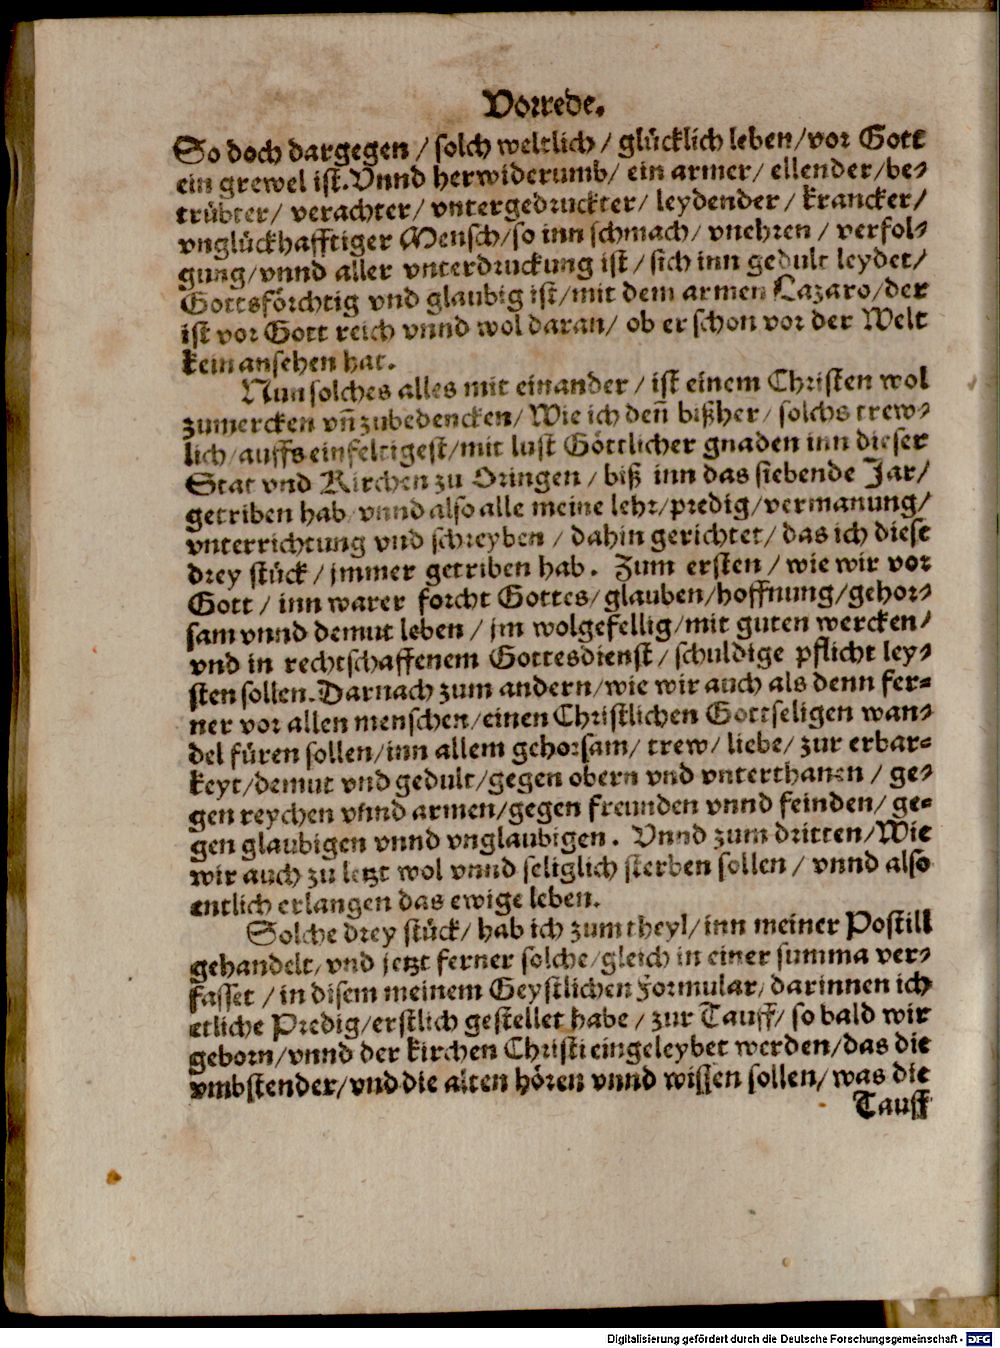 Vorrede.
So doch dargegen / solch weltlich / glücklich leben/vor Gott
ein grewel ist. Vnnd herwiderumb/ ein armer/ ellender/be-
trübter/ verachter/ vntergedruckter/ leydender / krancker/
vnglückhafftiger Mensch/so inn schmach/ vnehren / verfol-
gung/vnnd aller vnterdruckung ist / sich inn gedult leydet/
Gottsförchtig vnd glaubig ist/mit dem armen Lazaro/der
ist vor Gott reich vnnd wol daran/ ob er schon vor der Welt
kein ansehen hat.
Nun solches alles mit einander / ist einem Christen wol
zumercken vñ zubedencken/ Wie ich deñ bißher/ solchs trew-
lich/auffs einfeltigest/mit lust Göttlicher gnaden inn dieser
Stat vnd Kirchen zu Oringen / biß inn das siebende Jar/
getriben hab/vnnd also alle meine lehr/predig/vermanung/
vnterrichtung vnd schreyben / dahin gerichtet/ das ich diese
drey stück / jmmer getriben hab. Zum ersten / wie wir vor
Gott / inn warer forcht Gottes/ glauben/hoffnung/gehor-
sam vnnd demut leben / jm wolgefellig/mit guten wercken/
vnd in rechtschaffenem Gottesdienst/ schuldige pflicht ley-
sten sollen. Darnach zum andern/wie wir auch als denn fer-
ner vor allen menschen/einen Christlichen Gottseligen wan-
del füren sollen/inn allem gehorsam/ trew/ liebe/ zur erbar-
keyt/demut vnd gedult/gegen obern vnd vnterthanen / ge-
gen reychen vnnd armen/gegen freunden vnnd feinden/ ge-
gen glaubigen vnnd vnglaubigen. Vnnd zum dritten/Wie
wir auch zu letzt wol vnnd seliglich sterben sollen / vnnd also
entlich erlangen das ewige leben.
Solche drey stück/ hab ich zum theyl/inn meiner Postill
gehandelt/vnd jetzt ferner solche/gleich in einer summa ver-
fasset / in disem meinem Geystlichen Formular/darinnen ich
etliche Predig/erstlich gestellet habe / zur Tauff/ so bald wir
geborn/vnnd der kirchen Christi eingeleybet werden/das die
vmbstender/vnd die alten hören vnnd wissen sollen/was die
Tauff
Digitalisierung gefördert durch die Deutsche Forschungsgemeinschaft - DFG